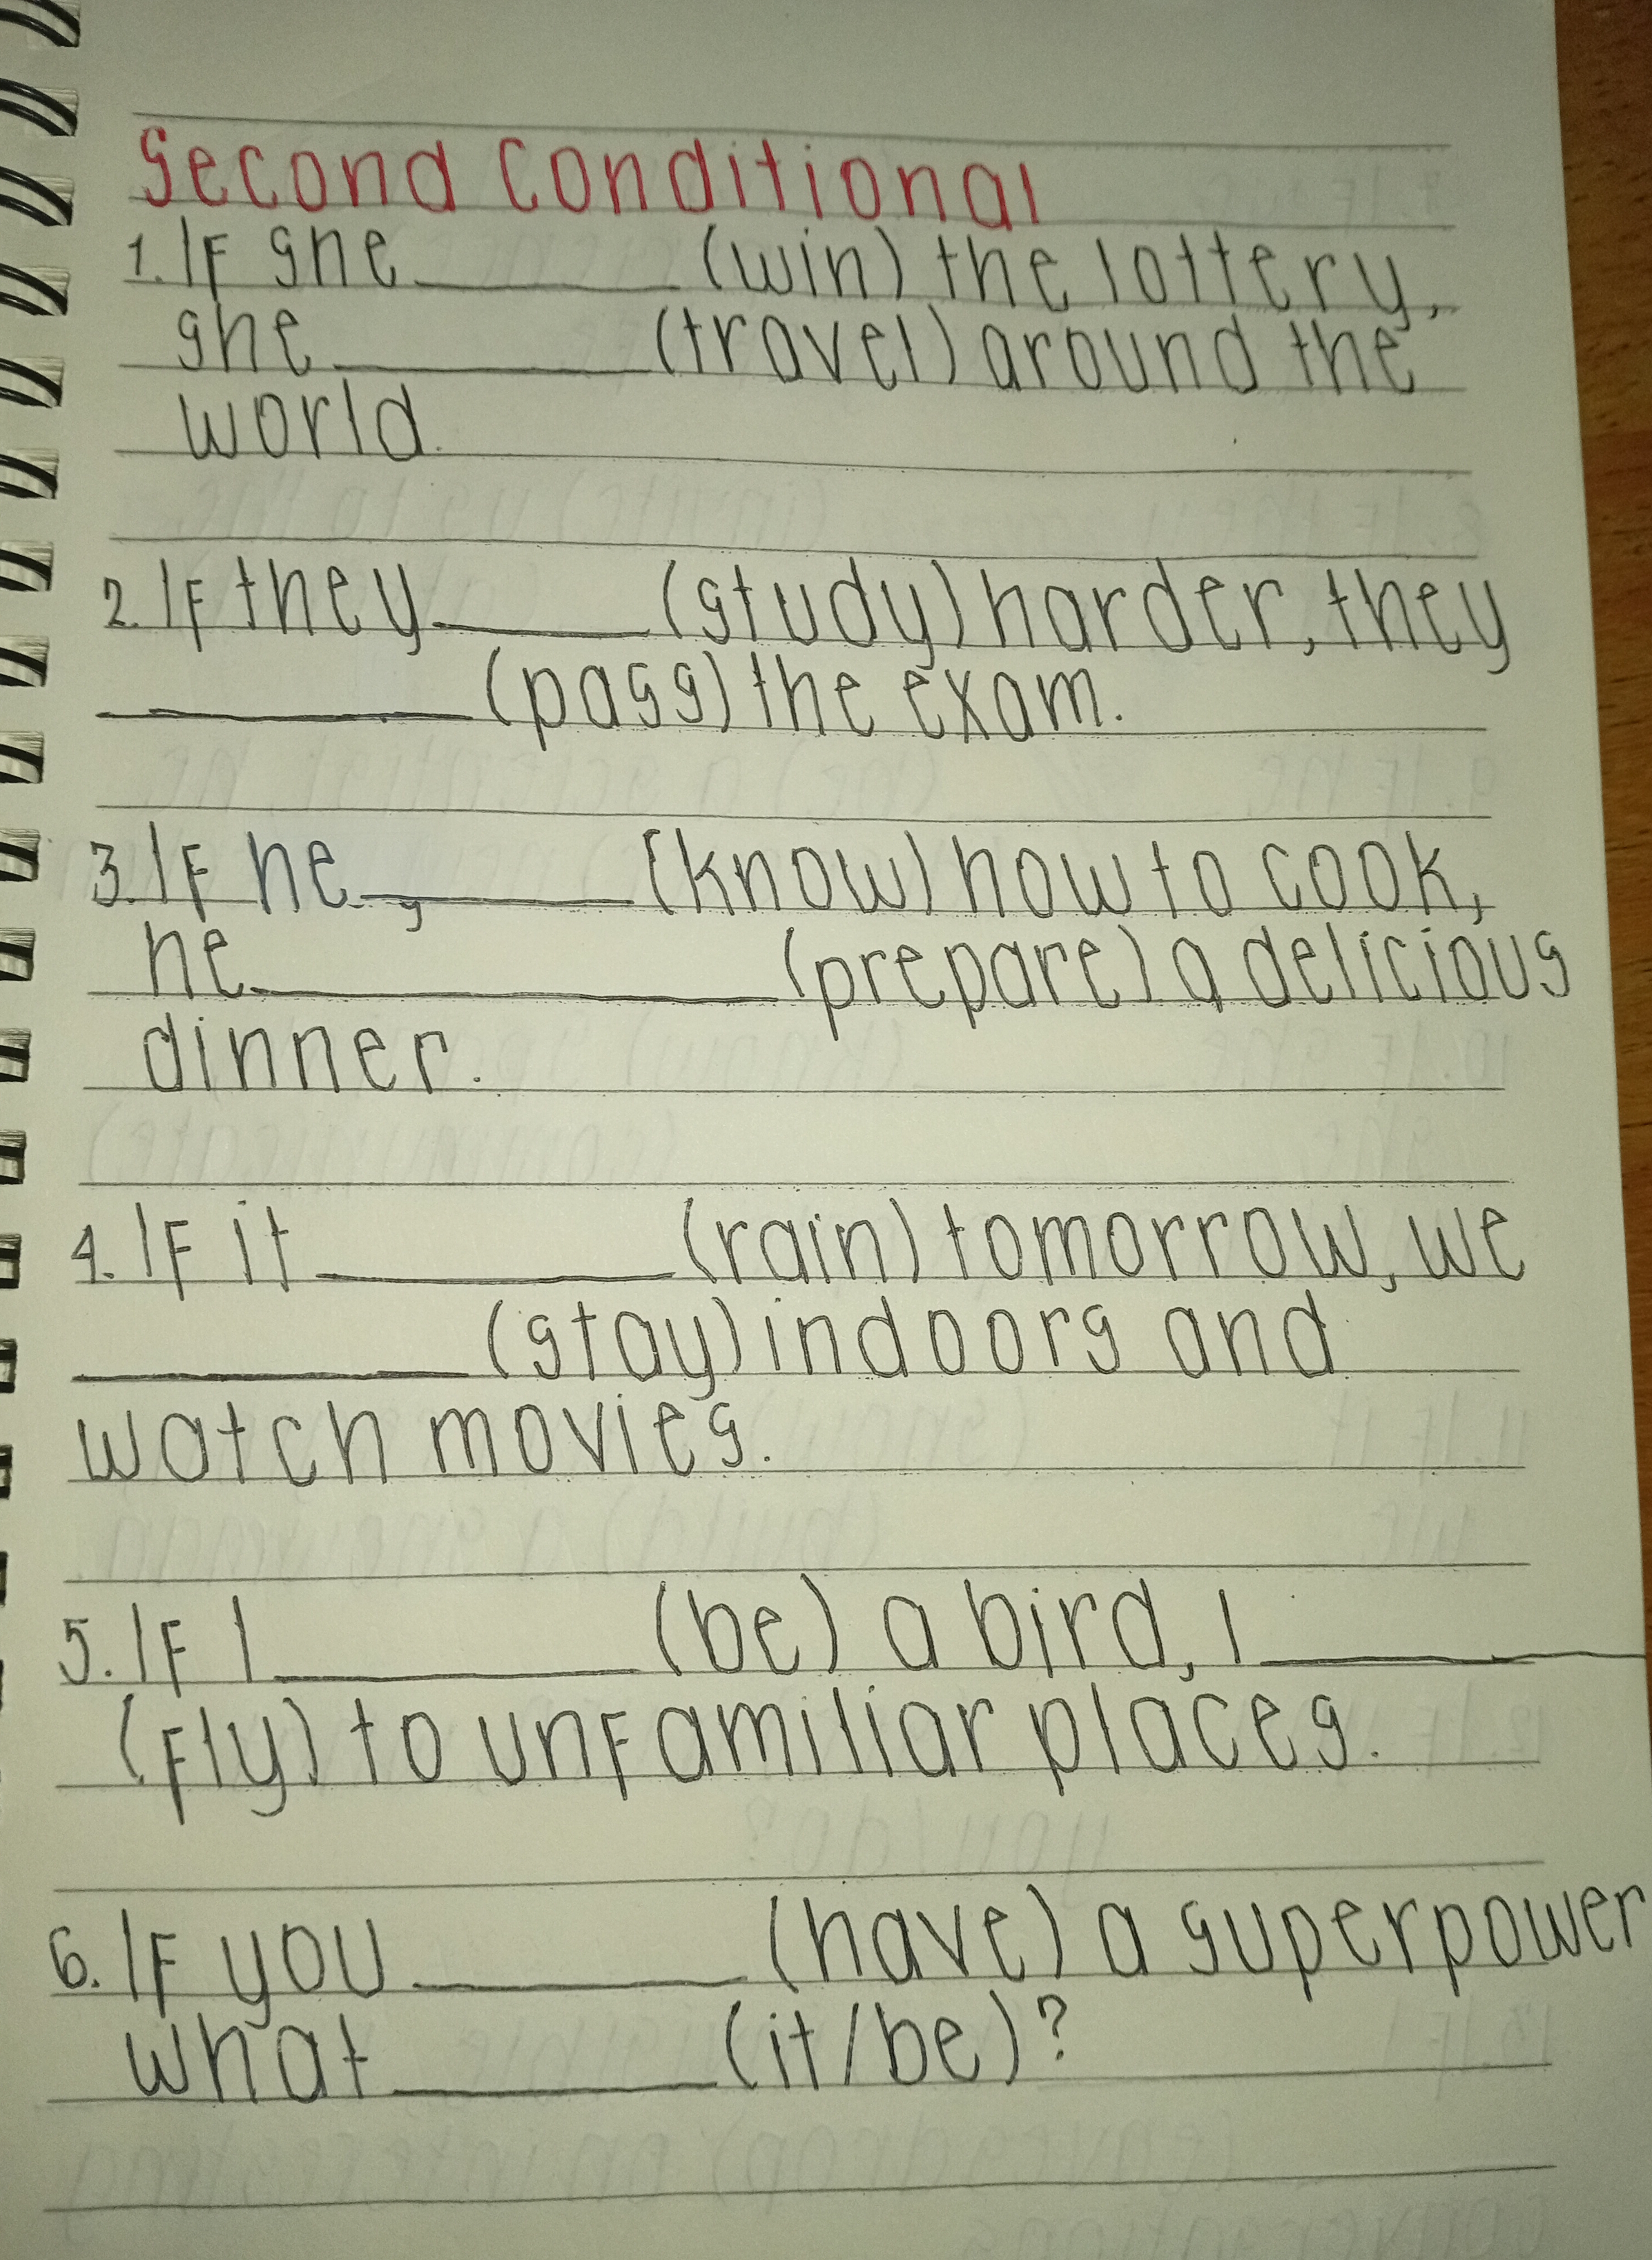 Second Conditional
1. If she ______ (win) the lottery,
she ______ (travel) around the
world.
2. If they ______ (study) harder, they
______ (pass) the exam.
3. If he ______ (know) how to cook,
he ______ (prepare) a delicious
dinner.
4. If it ______ (rain) tomorrow, we
______ (stay) indoors and
watch movies.
5. If I ______ (be) a bird, I ______
(fly) to unfamiliar places.
6. If you ______ (have) a superpower
what ______ (it/be)?